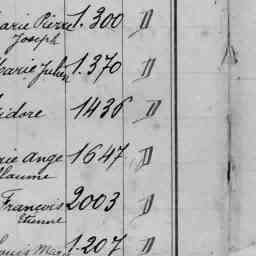 Marie Pierre 1.300 D
Joseph
Marie Julien 1.370 D
Isidore 1436 D
Marie Ange 1647 D
Guillaume
François 2003 D
Etienne
Louis Marie 1.207 D